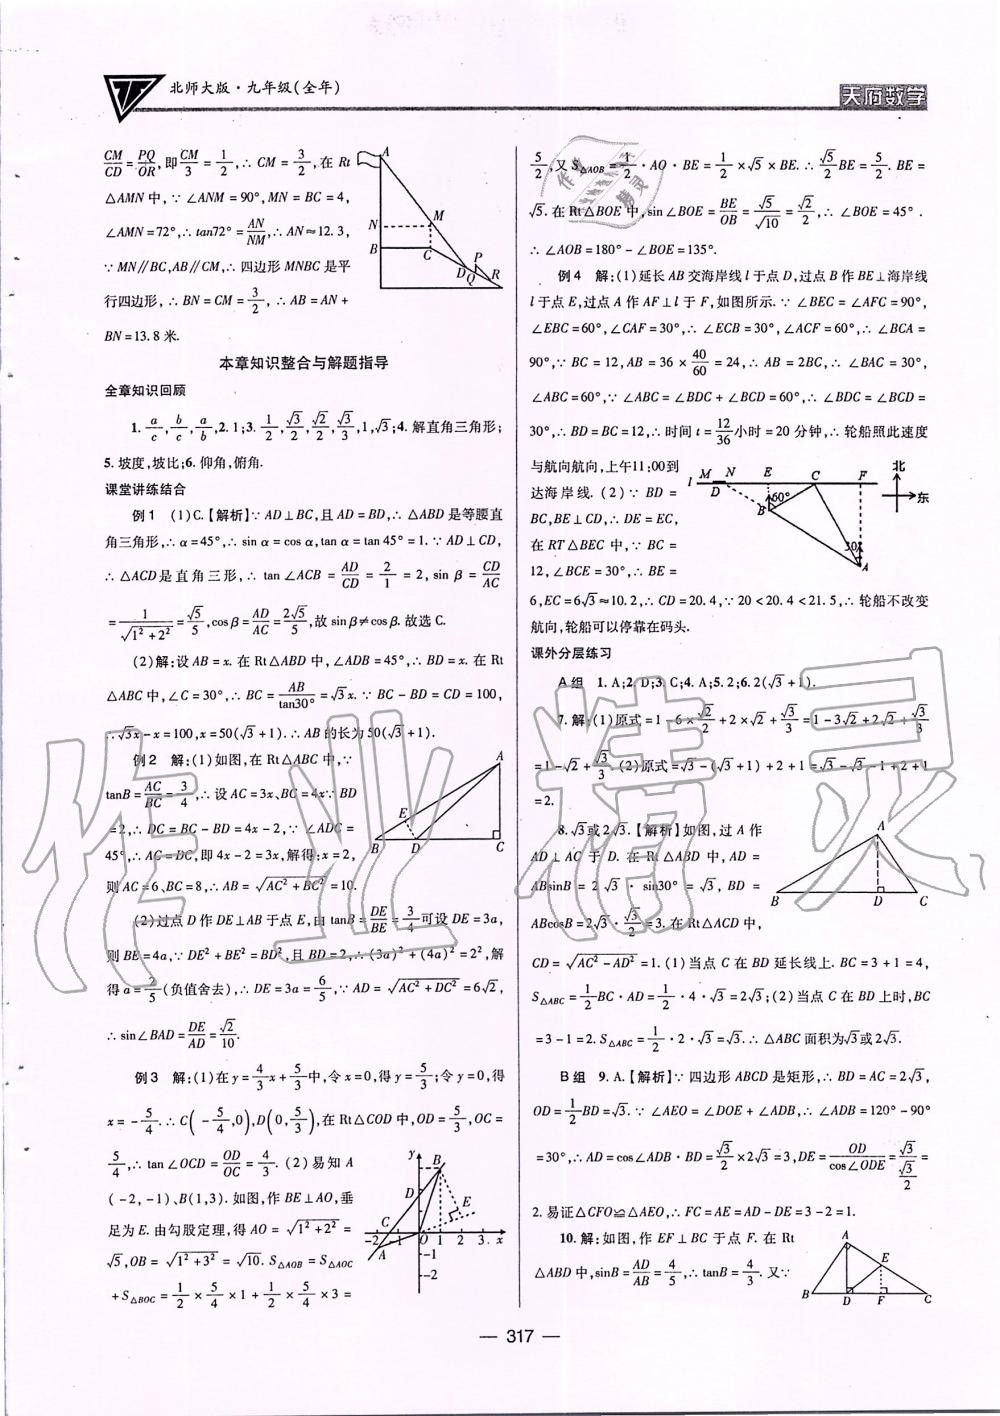 北师大版·九年级(全年)
天府数学
CM/CD=PQ/QR,即CM/3=1/2,∴CM=3/2,在Rt
△AMN中,∵∠ANM=90°,MN=BC=4,
∠AMN=72°,∴tan72°=AN/NM,∴AN≈12.3,
∵MN∥BC,AB∥CM,∴四边形MNBC是平
行四边形,∴BN=CM=3/2,∴AB=AN+
BN=13.8米.
A
N
M
B
C
D
Q
P
R
本章知识整合与解题指导
全章知识回顾
1.a/c,b/c,a/b,2.1;3.1/2,√3/2,√2/2,√3/3,1,√3;4.解直角三角形;
5.坡度,坡比;6.仰角,俯角.
课堂讲练结合
例1 (1)C.【解析】∵AD⊥BC,且AD=BD,∴△ABD是等腰直
角三角形,∴α=45°,∴sin α=cos α,tan α=tan 45°=1.∵AD⊥CD,
∴△ACD是直角三角形,∴tan∠ACB=AD/CD=2/1=2,sin β=CD/AC
=1/√(1²+2²)=√5/5,cosβ=AD/AC=2√5/5,故sinβ≠cosβ.故选C.
(2)解:设AB=x.在Rt△ABD中,∠ADB=45°,∴BD=x.在Rt
△ABC中,∠C=30°,∴BC=AB/tan30°=√3x.∵BC-BD=CD=100,
∴√3x-x=100,x=50(√3+1).∴AB的长为50(√3+1).
例2 解:(1)如图,在Rt△ABC中,∵
tanB=AC/BC=3/4,∴设AC=3x、BC=4x∵BD
=2,∴DC=BC-BD=4x-2,∵∠ADC=
45°,∴AC=DC,即4x-2=3x,解得:x=2,
则AC=6、BC=8,∴AB=√(AC²+BC²)=10.
A
E
B
D
C
(2)过点D作DE⊥AB于点E,由tanB=DE/BE=3/4可设DE=3a,
则BE=4a,∵DE²+BE²=BD²,且BD=2,∴(3a)²+(4a)²=2²,解
得a=2/5(负值舍去),∴DE=3a=6/5,∵AD=√(AC²+DC²)=6√2,
∴sin∠BAD=DE/AD=√2/10.
例3 解:(1)在y=4/3x+5/3中,令x=0,得y=5/3;令y=0,得
x=-5/4.∴C(-5/4,0),D(0,5/3),在Rt△COD中,OD=5/3,OC=
5/4,∴tan∠OCD=OD/OC=4/3.(2)易知A
(-2,-1)、B(1,3).如图,作BE⊥AO,垂
足为E.由勾股定理,得AO=√(1²+2²)=
√5,OB=√(1²+3²)=√10.S△AOB=S△AOC
+S△BOC=1/2×5/4×1+1/2×5/4×3=
y
B
D
C
E
-2 -1 O 1 2 3 x
A
-1
-2
5/2,又S△AOB=1/2·AO·BE=1/2×√5×BE.∴√5/2BE=5/2.BE=
√5.在Rt△BOE中,sin∠BOE=BE/OB=√5/√10=√2/2,∴∠BOE=45°.
∴∠AOB=180°-∠BOE=135°.
例4 解:(1)延长AB交海岸线l于点D,过点B作BE⊥海岸线
l于点E,过点A作AF⊥l于F,如图所示.∵∠BEC=∠AFC=90°,
∠EBC=60°,∠CAF=30°,∴∠ECB=30°,∠ACF=60°,∴∠BCA=
90°,∵BC=12,AB=36×40/60=24,∴AB=2BC,∴∠BAC=30°,
∠ABC=60°,∵∠ABC=∠BDC+∠BCD=60°,∴∠BDC=∠BCD=
30°,∴BD=BC=12,∴时间t=12/36小时=20分钟,∴轮船照此速度
与航向航向,上午11:00到
达海岸线.(2)∵BD=
BC,BE⊥CD,∴DE=EC,
在RT△BEC中,∵BC=
12,∠BCE=30°,∴BE=
l
M
N
D
E
C
F
B
60°
30°
A
北
东
6,EC=6√3≈10.2,∴CD=20.4,∵20<20.4<21.5,∴轮船不改变
航向,轮船可以停靠在码头.
课外分层练习
A组 1.A;2.D;3.C;4.A;5.2;6.2(√3+1).
7.解:(1)原式=1-6×√2/2+2×√2+√3/3=1-3√2+2√2+√3/3
=1-√2+√3/3.(2)原式=√3-(√3+1)+2+1=√3-√3-1+2+1
=2.
8.√3或2√3.【解析】如图,过A作
AD⊥AC于D.在Rt△ABD中,AD=
ABsinB=2√3·sin30°=√3,BD=
ABcosB=2√3·√3/2=3.在Rt△ACD中,
A
B
D
C
CD=√(AC²-AD²)=1.(1)当点C在BD延长线上.BC=3+1=4,
S△ABC=1/2BC·AD=1/2·4·√3=2√3;(2)当点C在BD上时,BC
=3-1=2.S△ABC=1/2·2·√3=√3.∴△ABC面积为√3或2√3.
B组 9.A.【解析】∵四边形ABCD是矩形,∴BD=AC=2√3,
OD=1/2BD=√3.∵∠AEO=∠DOE+∠ADB,∴∠ADB=120°-90°
=30°,∴AD=cos∠ADB·BD=√3/2×2√3=3,DE=OD/cos∠ODE=√3/(√3/2)=
2.易证△CFO≌△AEO,∴FC=AE=AD-DE=3-2=1.
10.解:如图,作EF⊥BC于点F.在Rt
△ABD中,sinB=AD/AB=4/5,∴tanB=4/3.又∵
A
E
B
D
F
C
— 317 —
作业精灵